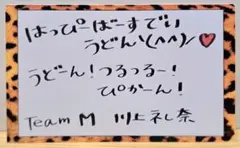 はっぴーばーすでい
うどん\(^^)/♥
うどーん！つるつるー！
ぴかーん！
Team M 川上礼奈